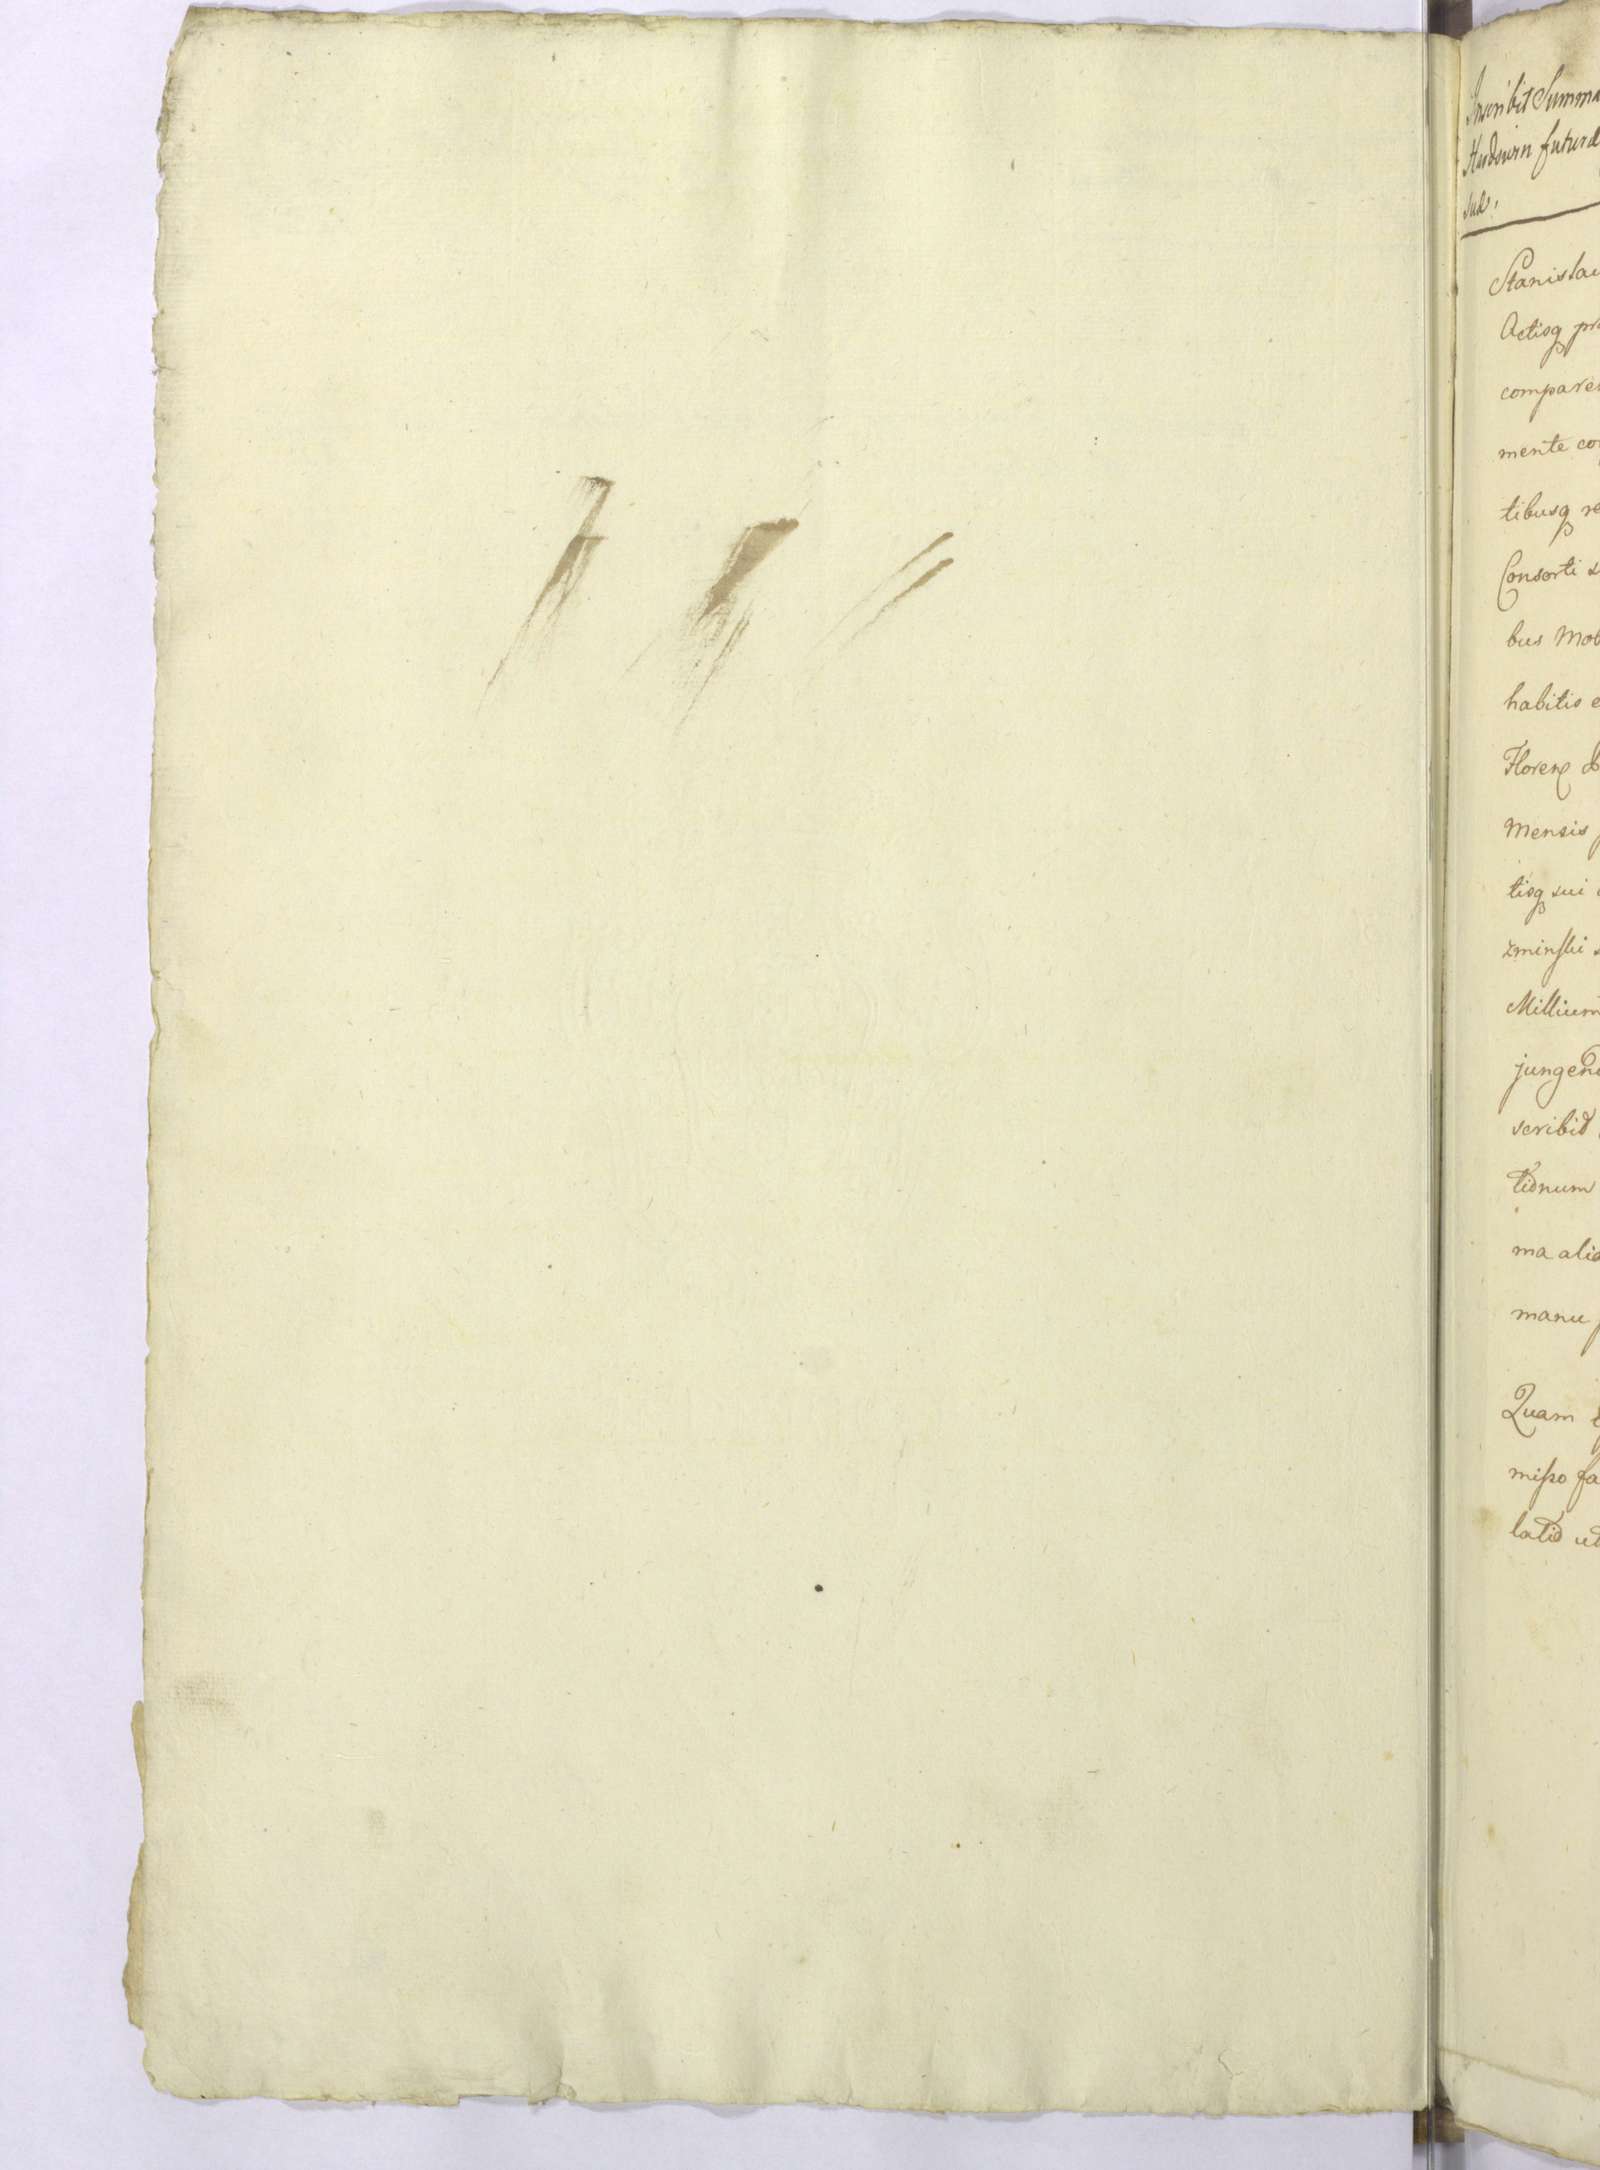 Inscribit Summa
futura
sua.
Stanislau
Actisq pr
compare
mente co
tibusq re
Consorti s
bus Mob
habitis e
Floren
Mensis
tisq sui
zminski
Millium
jungend
scribit
tionum
ma alia
manu
Quam
misso fa
latis ut